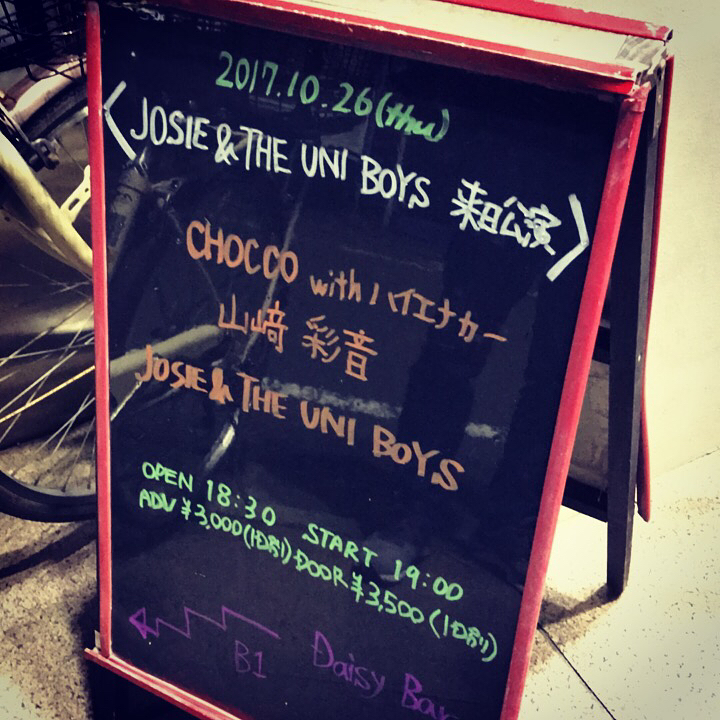 2017.10.26(thu)
〈JOSIE & THE UNI BOYS 来日公演〉
CHOCCO with ハイエナカー
山﨑 彩音
JOSIE & THE UNI BOYS
OPEN 18:30 START 19:00
ADV ¥3,000(1D別) DOOR ¥3,500(1D別)
B1 Daisy Bar